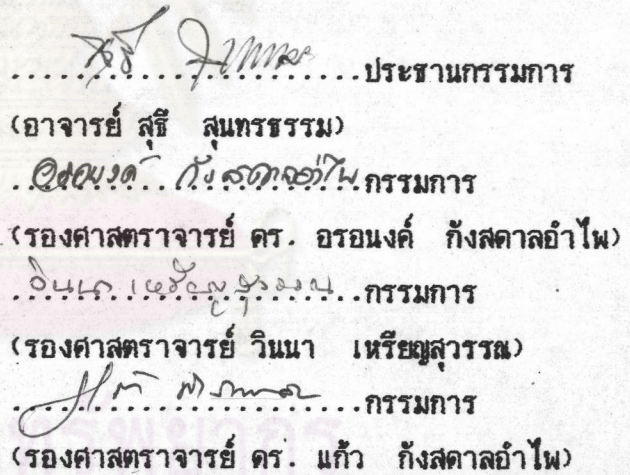 ....................ประธานกรรมการ
(อาจารย์ สุธี สุนทรธรรม)
อรอนงค์ กังสดาลอำไพ กรรมการ
(รองศาสตราจารย์ ดร. อรอนงค์ กังสดาลอำไพ)
วินนา เหรียญสุวรรณ กรรมการ
(รองศาสตราจารย์ วินนา เหรียญสุวรรณ)
....................กรรมการ
(รองศาสตราจารย์ ดร. แก้ว กังสดาลอำไพ)